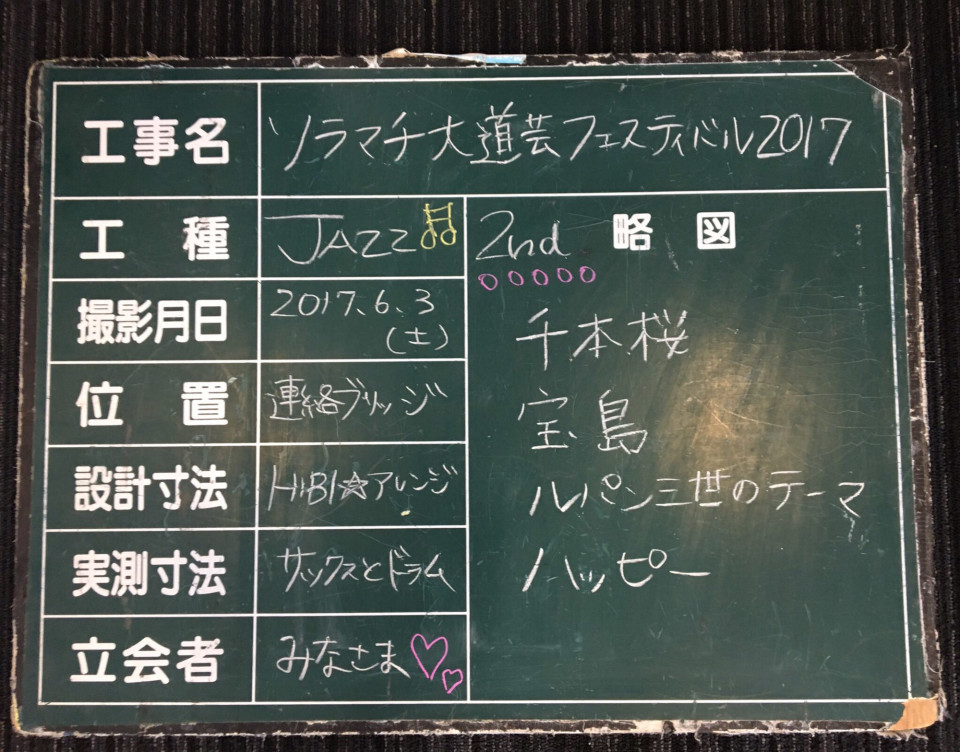 工事名 ソラマチ大道芸フェスティバル2017
工種 JAZZ
撮影月日 2017.6.3
(土)
位置 連絡ブリッジ
設計寸法 HIBI☆アレンジ
実測寸法 サックスとドラム
立会者 みなさま♡♡
2nd 略図
○○○○○
千本桜
宝島
ルパン三世のテーマ
ハッピー